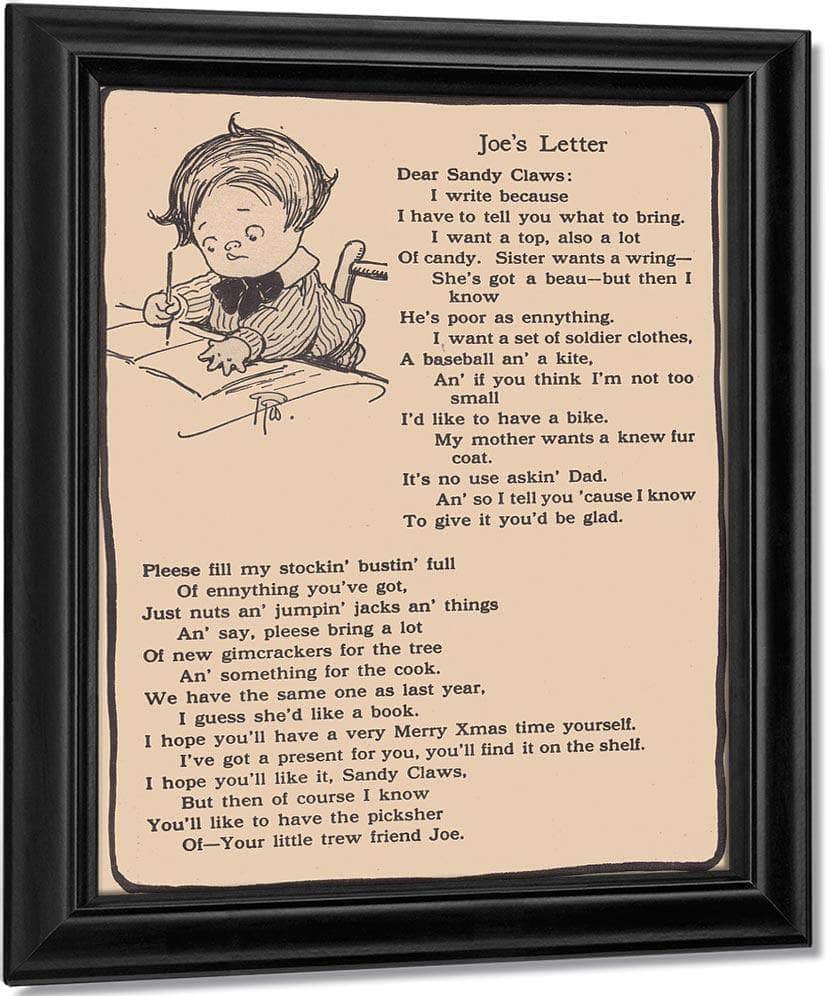 Joe's Letter
Dear Sandy Claws:
I write because
I have to tell you what to bring.
I want a top, also a lot
Of candy. Sister wants a wring—
She's got a beau—but then I
know
He's poor as ennything.
I want a set of soldier clothes,
A baseball an' a kite,
An' if you think I'm not too
small
I'd like to have a bike.
My mother wants a knew fur
coat.
It's no use askin' Dad.
An' so I tell you 'cause I know
To give it you'd be glad.
Pleese fill my stockin' bustin' full
Of ennything you've got,
Just nuts an' jumpin' jacks an' things
An' say, pleese bring a lot
Of new gimcrackers for the tree
An' something for the cook.
We have the same one as last year,
I guess she'd like a book.
I hope you'll have a very Merry Xmas time yourself.
I've got a present for you, you'll find it on the shelf.
I hope you'll like it, Sandy Claws,
But then of course I know
You'll like to have the picksher
Of—Your little trew friend Joe.